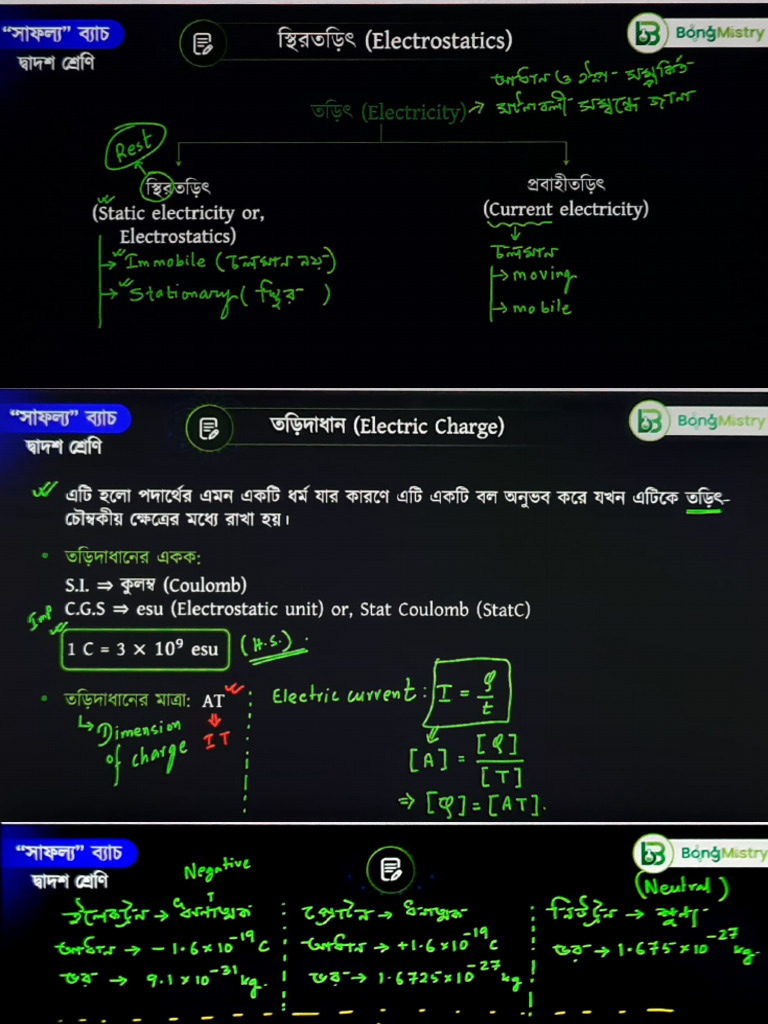 “সাফল্য” ব্যাচ
দ্বাদশ শ্রেণি
স্থিরতড়িৎ (Electrostatics)
BongMistry
তড়িৎ (Electricity) → আধান ও তার সম্পর্কিত
ঘটনাবলী সম্বন্ধে জানা
Rest
স্থিরতড়িৎ
(Static electricity or,
Electrostatics)
→ Immobile (চলমান নয়)
→ Stationary (স্থির)
প্রবাহীতড়িৎ
(Current electricity)
চলমান
→ moving
→ mobile
“সাফল্য” ব্যাচ
দ্বাদশ শ্রেণি
তড়িদাধান (Electric Charge)
BongMistry
এটি হলো পদার্থের এমন একটি ধর্ম যার কারণে এটি একটি বল অনুভব করে যখন এটিকে তড়িৎ-
চৌম্বকীয় ক্ষেত্রের মধ্যে রাখা হয়।
• তড়িদাধানের একক:
S.I. ⇒ কুলম্ব (Coulomb)
C.G.S ⇒ esu (Electrostatic unit) or, Stat Coulomb (StatC)
Imp
1 C = 3 × 10⁹ esu (H.S.)
• তড়িদাধানের মাত্রা: AT
IT
↳ Dimension
of charge
Electric current: I = Q/t
[A] = [Q]/[T]
⇒ [Q] = [AT].
“সাফল্য” ব্যাচ
দ্বাদশ শ্রেণি
BongMistry
Negative
ইলেকট্রন → ঋণাত্মক
আধান → -1.6×10⁻¹⁹ C
ভর → 9.1×10⁻³¹ kg.
প্রোটন → ধনাত্মক
আধান → +1.6×10⁻¹⁹ C
ভর → 1.6725×10⁻²⁷ kg
(Neutral)
নিউট্রন → শূন্য
ভর → 1.675×10⁻²⁷ kg.